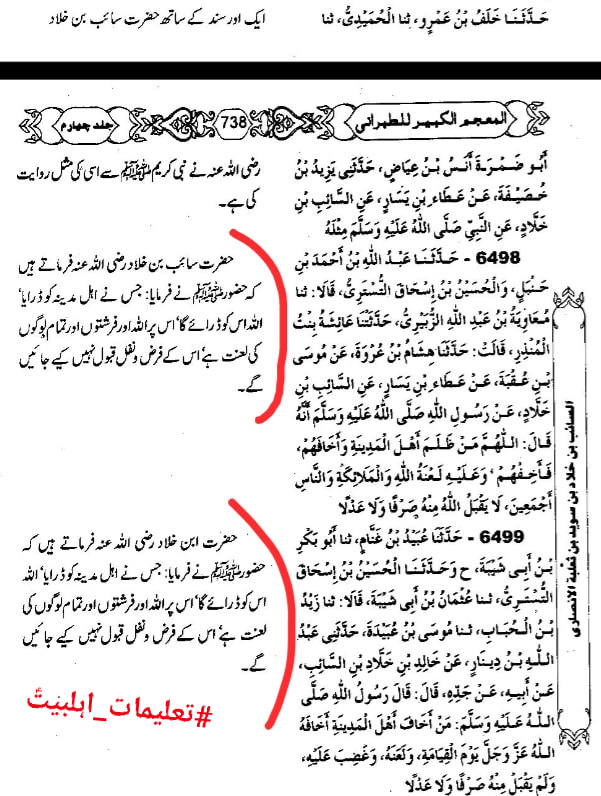 حَدَّثَنَا خَلَفُ بْنُ عَمْرٍو، ثنا الْحُمَيْدِيُّ، ثنا
ایک اور سند کے ساتھ حضرت سائب بن خلاد
المعجم الكبير للطبرانی
738
جلد چہارم
أَبُو ضَمْرَةَ أَنَسُ بْنُ عِيَاضٍ، حَدَّثَنِي يَزِيدُ بْنُ
خُصَيْفَةَ، عَنْ عَطَاءِ بْنِ يَسَارٍ، عَنِ السَّائِبِ بْنِ
خَلَّادٍ، عَنِ النَّبِيِّ صَلَّى اللهُ عَلَيْهِ وَسَلَّمَ مِثْلَهُ
رضی اللہ عنہ نے نبی کریم ﷺ سے اسی کی مثل روایت
کی ہے۔
6498 - حَدَّثَنَا عَبْدُ اللهِ بْنُ أَحْمَدَ بْنِ
حَنْبَلٍ، وَالْحُسَيْنُ بْنُ إِسْحَاقَ التُّسْتَرِيُّ، قَالَا: ثنا
مُعَاوِيَةُ بْنُ عَبْدِ اللهِ الزُّبَيْرِيُّ، حَدَّثَتْنَا عَائِشَةُ بِنْتُ
الْمُنْذِرِ، قَالَتْ: حَدَّثَنَا هِشَامُ بْنُ عُرْوَةَ، عَنْ مُوسَى
بْنِ عُقْبَةَ، عَنْ عَطَاءِ بْنِ يَسَارٍ، عَنِ السَّائِبِ بْنِ
خَلَّادٍ، عَنْ رَسُولِ اللهِ صَلَّى اللهُ عَلَيْهِ وَسَلَّمَ أَنَّهُ
قَالَ: اللَّهُمَّ مَنْ ظَلَمَ أَهْلَ الْمَدِينَةِ وَأَخَافَهُمْ،
فَأَخِفْهُمْ، وَعَلَيْهِ لَعْنَةُ اللهِ وَالْمَلَائِكَةِ وَالنَّاسِ
أَجْمَعِينَ، لَا يَقْبَلُ اللهُ مِنْهُ صَرْفًا وَلَا عَدْلًا
حضرت سائب بن خلاد رضی اللہ عنہ فرماتے ہیں
کہ حضور ﷺ نے فرمایا: جس نے اہل مدینہ کو ڈرایا'
اللہ اس کو ڈرائے گا' اس پر اللہ اور فرشتوں اور تمام لوگوں
کی لعنت ہے' اس کے فرض و نفل قبول نہیں کیے جائیں
گے۔
6499 - حَدَّثَنَا عُبَيْدُ بْنُ غَنَّامٍ، ثنا أَبُو بَكْرِ
بْنُ أَبِي شَيْبَةَ، ح وَحَدَّثَنَا الْحُسَيْنُ بْنُ إِسْحَاقَ
التُّسْتَرِيُّ، ثنا عُثْمَانُ بْنُ أَبِي شَيْبَةَ، قَالَا: ثنا زَيْدُ
بْنُ الْحُبَابِ، ثنا مُوسَى بْنُ عُبَيْدَةَ، حَدَّثَنِي عَبْدُ
اللهِ بْنُ دِينَارٍ، عَنْ خَالِدِ بْنِ خَلَّادِ بْنِ السَّائِبِ،
عَنْ أَبِيهِ، عَنْ جَدِّهِ، قَالَ: قَالَ رَسُولُ اللهِ صَلَّى
اللهُ عَلَيْهِ وَسَلَّمَ: مَنْ أَخَافَ أَهْلَ الْمَدِينَةِ أَخَافَهُ
اللهُ عَزَّ وَجَلَّ يَوْمَ الْقِيَامَةِ، وَلَعَنَهُ، وَغَضِبَ عَلَيْهِ،
وَلَمْ يَقْبَلْ مِنْهُ صَرْفًا وَلَا عَدْلًا
حضرت ابن خلاد رضی اللہ عنہ فرماتے ہیں کہ
حضور ﷺ نے فرمایا: جس نے اہل مدینہ کو ڈرایا' اللہ
اس کو ڈرائے گا' اس پر اللہ اور فرشتوں اور تمام لوگوں کی
لعنت ہے' اس کے فرض و نفل قبول نہیں کیے جائیں
گے۔
#تعلیمات_اہلبیتؑ
السائب بن خلاد بن سويد بن ثعلبة الانصاری